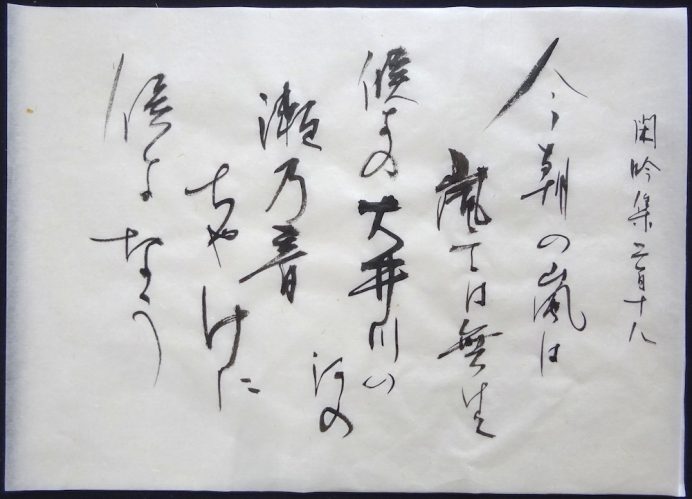 閑吟集二百十八
今朝の嵐は
嵐ては無けに
候よの大井川の
河の
瀬乃音
ちやけに
候よなう